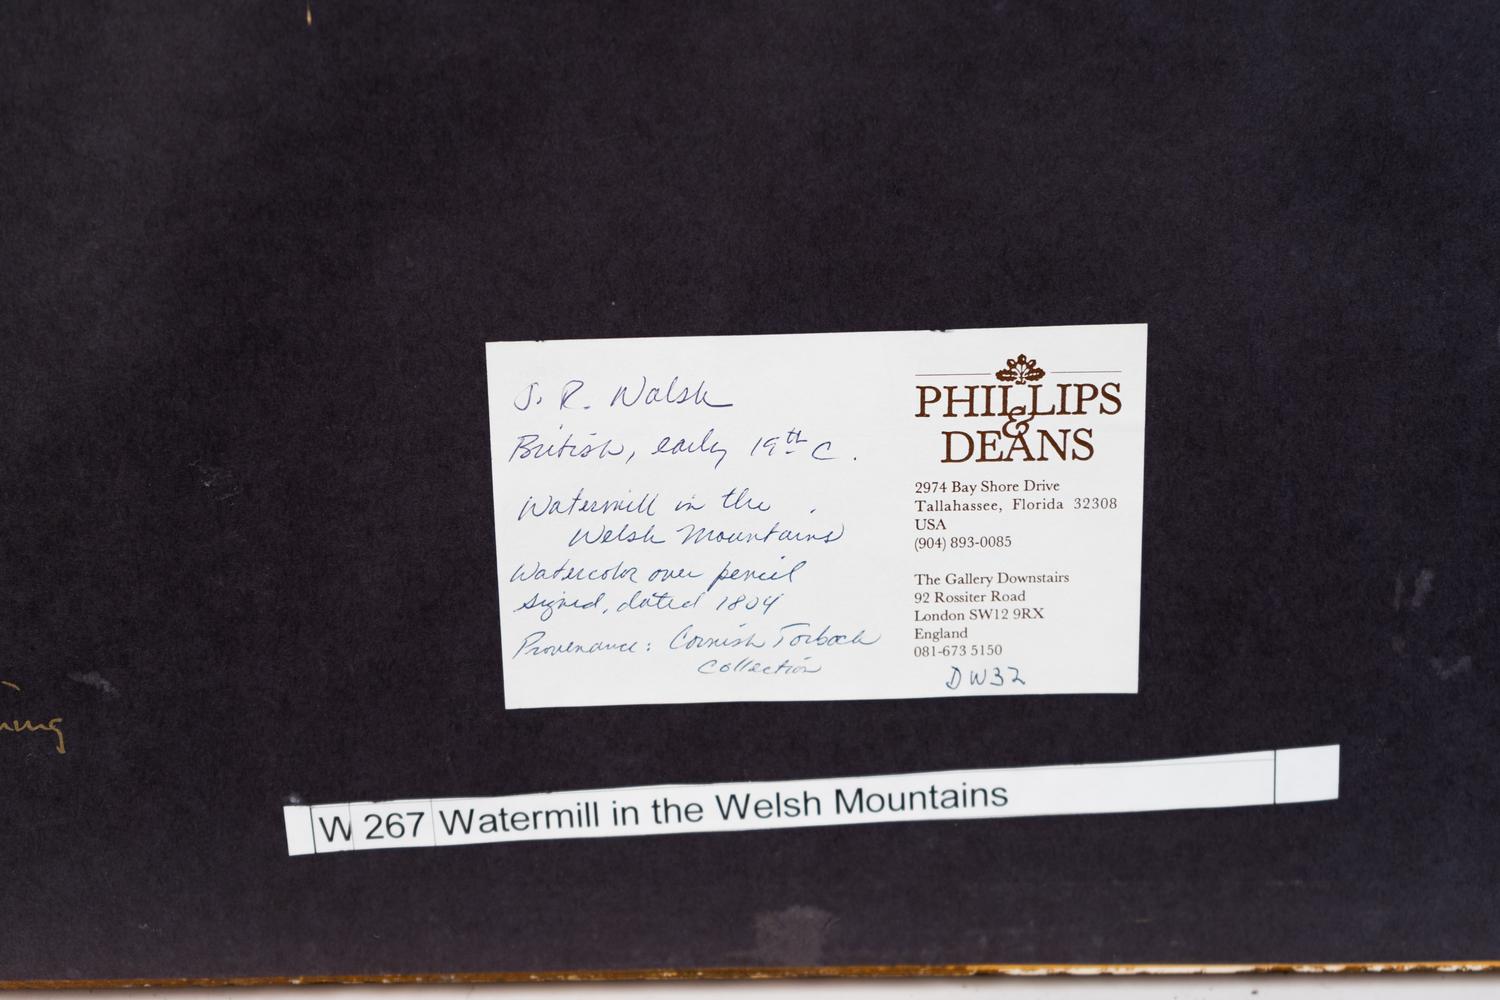 J. R. Walsh
British, early 19th C.
Watermill in the
Welsh Mountains
Watercolor over pencil
signed, dated 1804
Provenance: Cornish Torbock
Collection
PHILLIPS
&
DEANS
2974 Bay Shore Drive
Tallahassee, Florida 32308
USA
(904) 893-0085
The Gallery Downstairs
92 Rossiter Road
London SW12 9RX
England
081-673 5150
DW32
W 267 Watermill in the Welsh Mountains